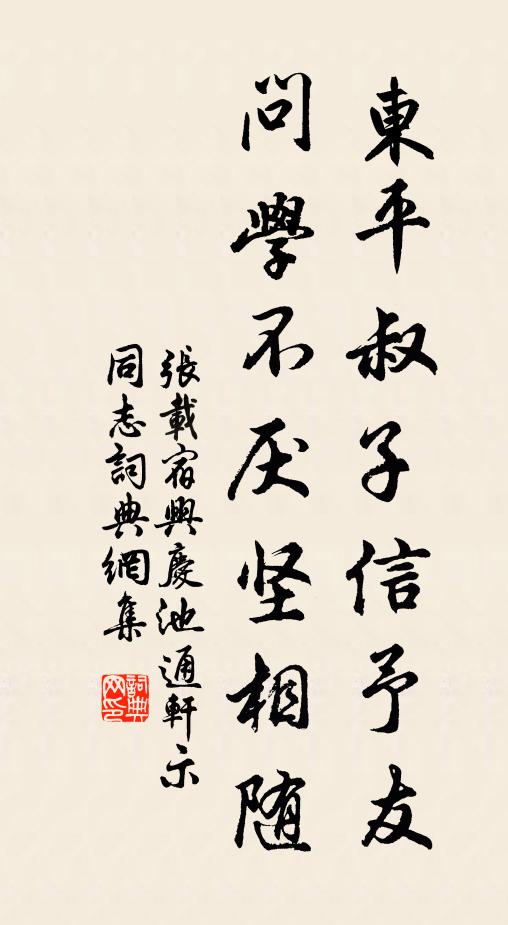 東平叔子信予友
問學不厌坚相随
張載宿興慶池通軒示
同志詞典網集
詞典
网印